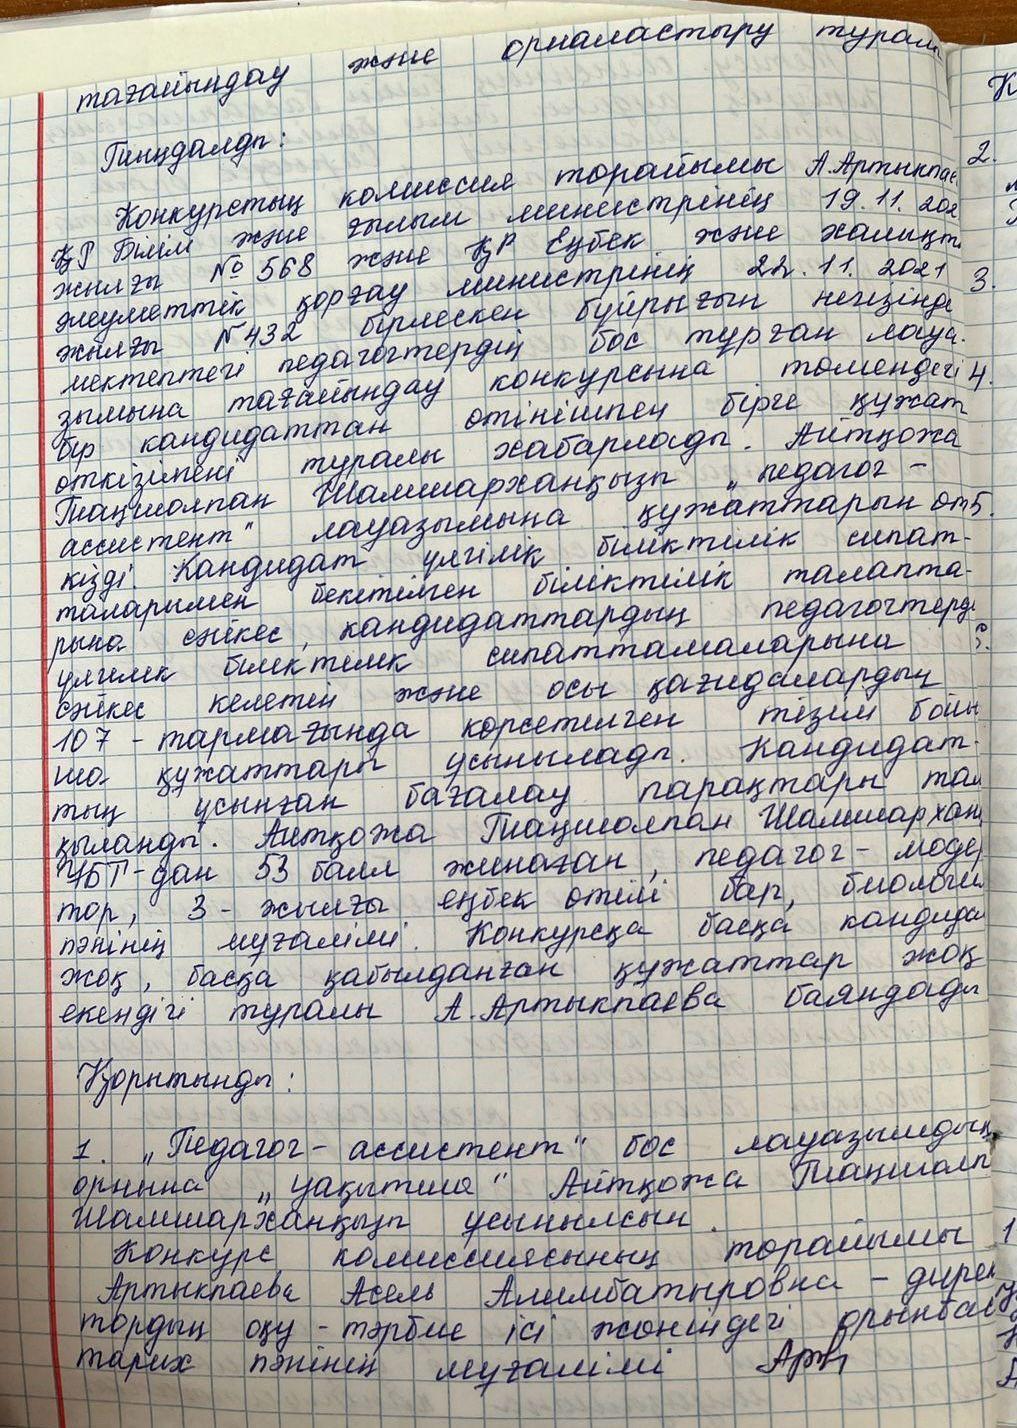 тағайындау және орналастыру турал
Тыңдалды:
Конкурстың комиссия торайымы А.Артыкпае
ҚР Білім және ғылым министрінің 19.11.202
жылғы №568 және ҚР Еңбек және халықт
әлеуметтік қорғау министрінің 22.11.2021
жылғы №432 бірлескен бұйрығын негізінде
мектептегі педагогтердің бос тұрған лауа-
зымына тағайындау конкурсына төмендегі
бір кандидаттан өтінішпен бірге құжат
өткізілгені туралы хабарлады. Айтқожа
Таңшолпан Шалшарханқызы „педагог -
ассистент" лауазымына құжаттарын өт
кізді. Кандидат үлгілік біліктілік сипат-
таларымен бекітілген біліктілік талапта-
рына сәйкес, кандидаттардың педагогтерді
үлгілік біліктілік сипаттамаларына
сәйкес келетін және осы қағидалардың
107 - тармағында көрсетілген тізім бойын
ша құжаттары ұсынылады. Кандидат-
тың ұсынған бағалау парақтары тал
қыланды. Айтқожа Таңшолпан Шалшархан
ҰБТ-дан 53 балл жинаған, педагог - моде
тор, 3 - жылғы еңбек өтілі бар, биологи
пәнінің мұғалімі. Конкурсқа басқа кандида
жоқ, басқа қабылданған құжаттар жоқ
екендігі туралы А.Артыкпаева баяндады
Қорытынды:
1. „Педагог - ассистент" бос лауазымдың
орнына „уақытша" Айтқожа Таңшолп
Шалшарханқызы ұсынылсын.
Конкурс комиссиясының торайымы
Артыкпаева Асель Алимбатыровна - дирек
тордың оқу - тәрбие ісі жөніндегі орынбас
тарих пәнінің мұғалімі
2.
3.
4.
5.